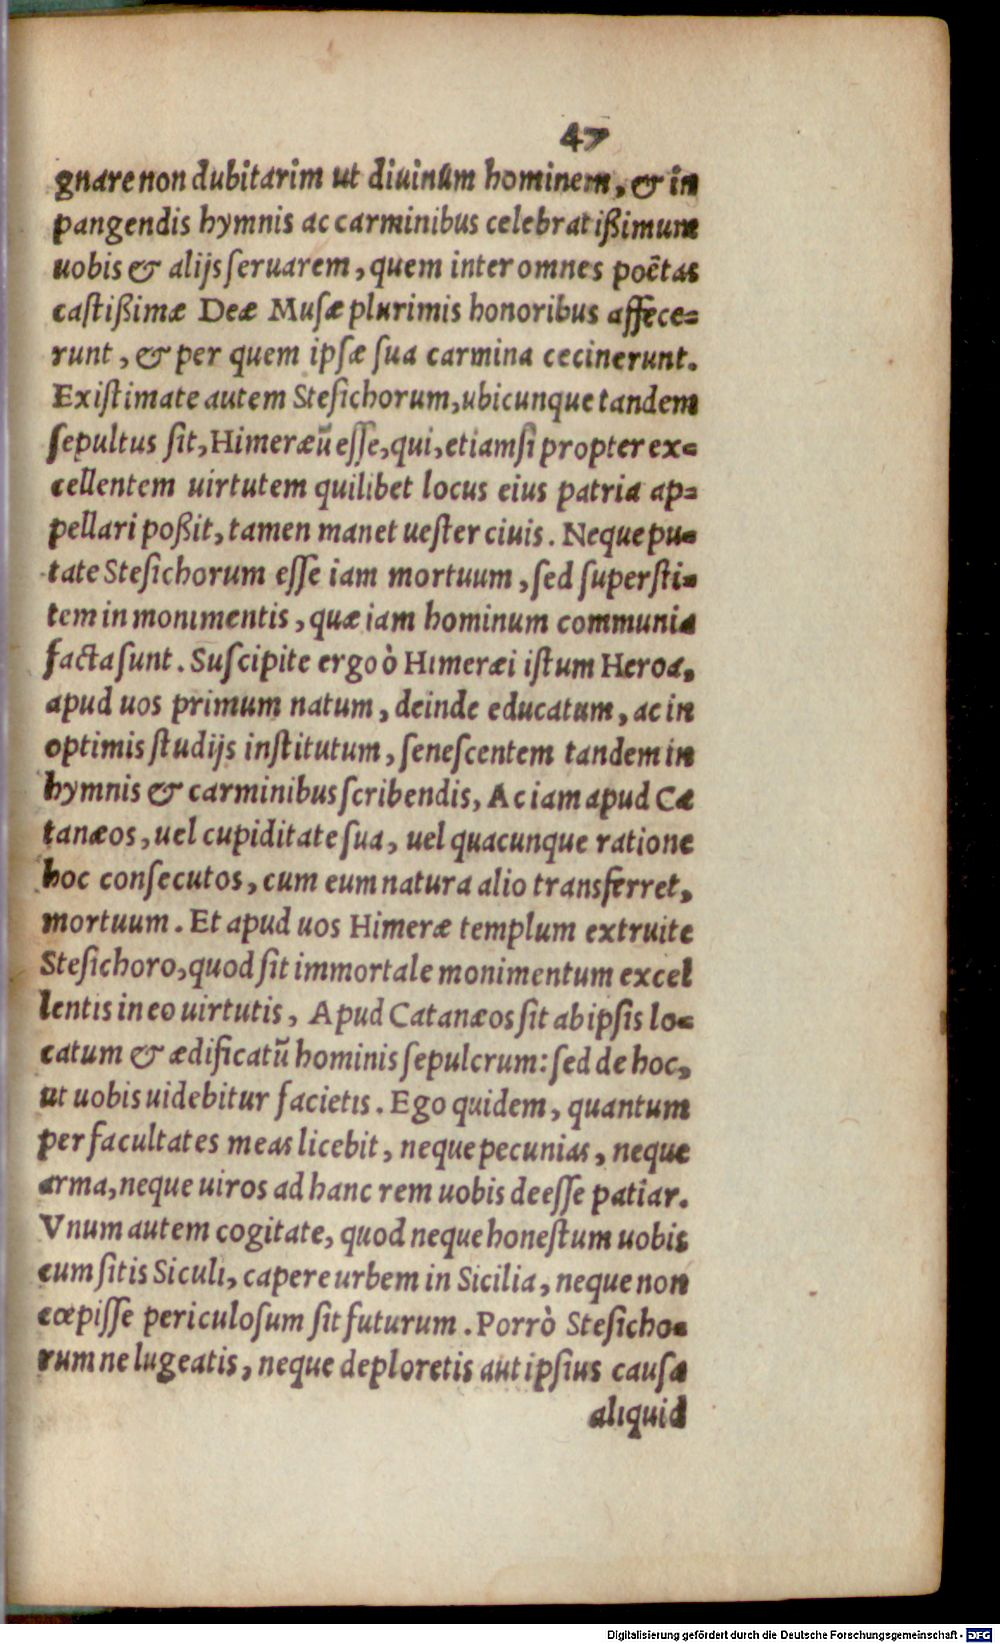 47
gnare non dubitarim ut diuinũm hominem, & in
pangendis hymnis ac carminibus celebratißimum
uobis & alijs ſeruarem, quem inter omnes poẽtas
caſtißimæ Deæ Muſæ plurimis honoribus affece=
runt, & per quem ipſæ ſua carmina cecinerunt.
Exiſtimate autem Steſichorum, ubicunque tandem
ſepultus ſit, Himeræũ eſſe, qui, etiamſi propter ex=
cellentem uirtutem quilibet locus eius patria ap=
pellari poßit, tamen manet ueſter ciuis. Neque pu=
tate Steſichorum eſſe iam mortuum, ſed ſuperſti=
tem in monimentis, quæ iam hominum communia
facta ſunt. Suſcipite ergo ò Himeræi iſtum Heroa,
apud uos primum natum, deinde educatum, ac in
optimis ſtudijs inſtitutum, ſeneſcentem tandem in
hymnis & carminibus ſcribendis, Ac iam apud Ca
tanæos, uel cupiditate ſua, uel quacunque ratione
hoc conſecutos, cum eum natura alio transferret,
mortuum. Et apud uos Himeræ templum extruite
Steſichoro, quod ſit immortale monimentum excel
lentis in eo uirtutis, Apud Catanæos ſit ab ipſis lo=
catum & ædificatũ hominis ſepulcrum: ſed de hoc,
ut uobis uidebitur facietis. Ego quidem, quantum
per facultates meas licebit, neque pecunias, neque
arma, neque uiros ad hanc rem uobis deeſſe patiar.
Vnum autem cogitate, quod neque honeſtum uobis
cum ſitis Siculi, capere urbem in Sicilia, neque non
cœpiſſe periculoſum ſit futurum. Porrò Steſicho=
rum ne lugeatis, neque deploretis aut ipſius cauſa
aliquid
Digitalisierung gefördert durch die Deutsche Forschungsgemeinschaft - DFG